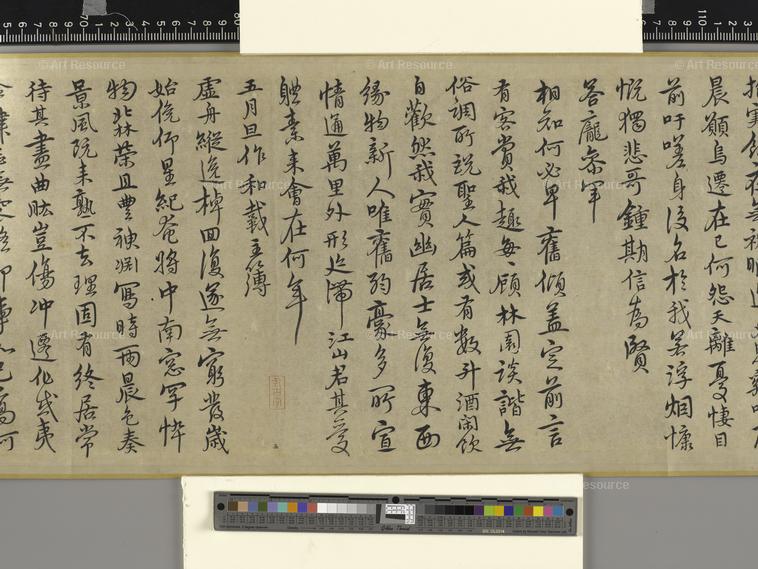 夜無被眠造夕思雞鳴
晨願烏遷在己何怨天離憂悽目
前吁嗟身後名於我若浮烟慷
慨獨悲哥鍾期信為賢
答龐參軍
相知何必早舊傾蓋定前言
有客賞我趣每每顧林園談諧無
俗調所說聖人篇或有數斗酒閑飲
自歡然我實幽居士無復東西
緣物新人唯舊弱毫多所宣
情通萬里外形迹滯江山君其愛
體素來會在何年
五月旦作和戴主簿
虛舟縱逸棹回復遂無窮發歲
始俛仰星紀奄將中南窓罕悴
物北林榮且豐神淵寫時雨晨色奏
景風既來孰不去理固有終居常
待其盡曲肱豈傷沖遷化或夷
© Art Resource